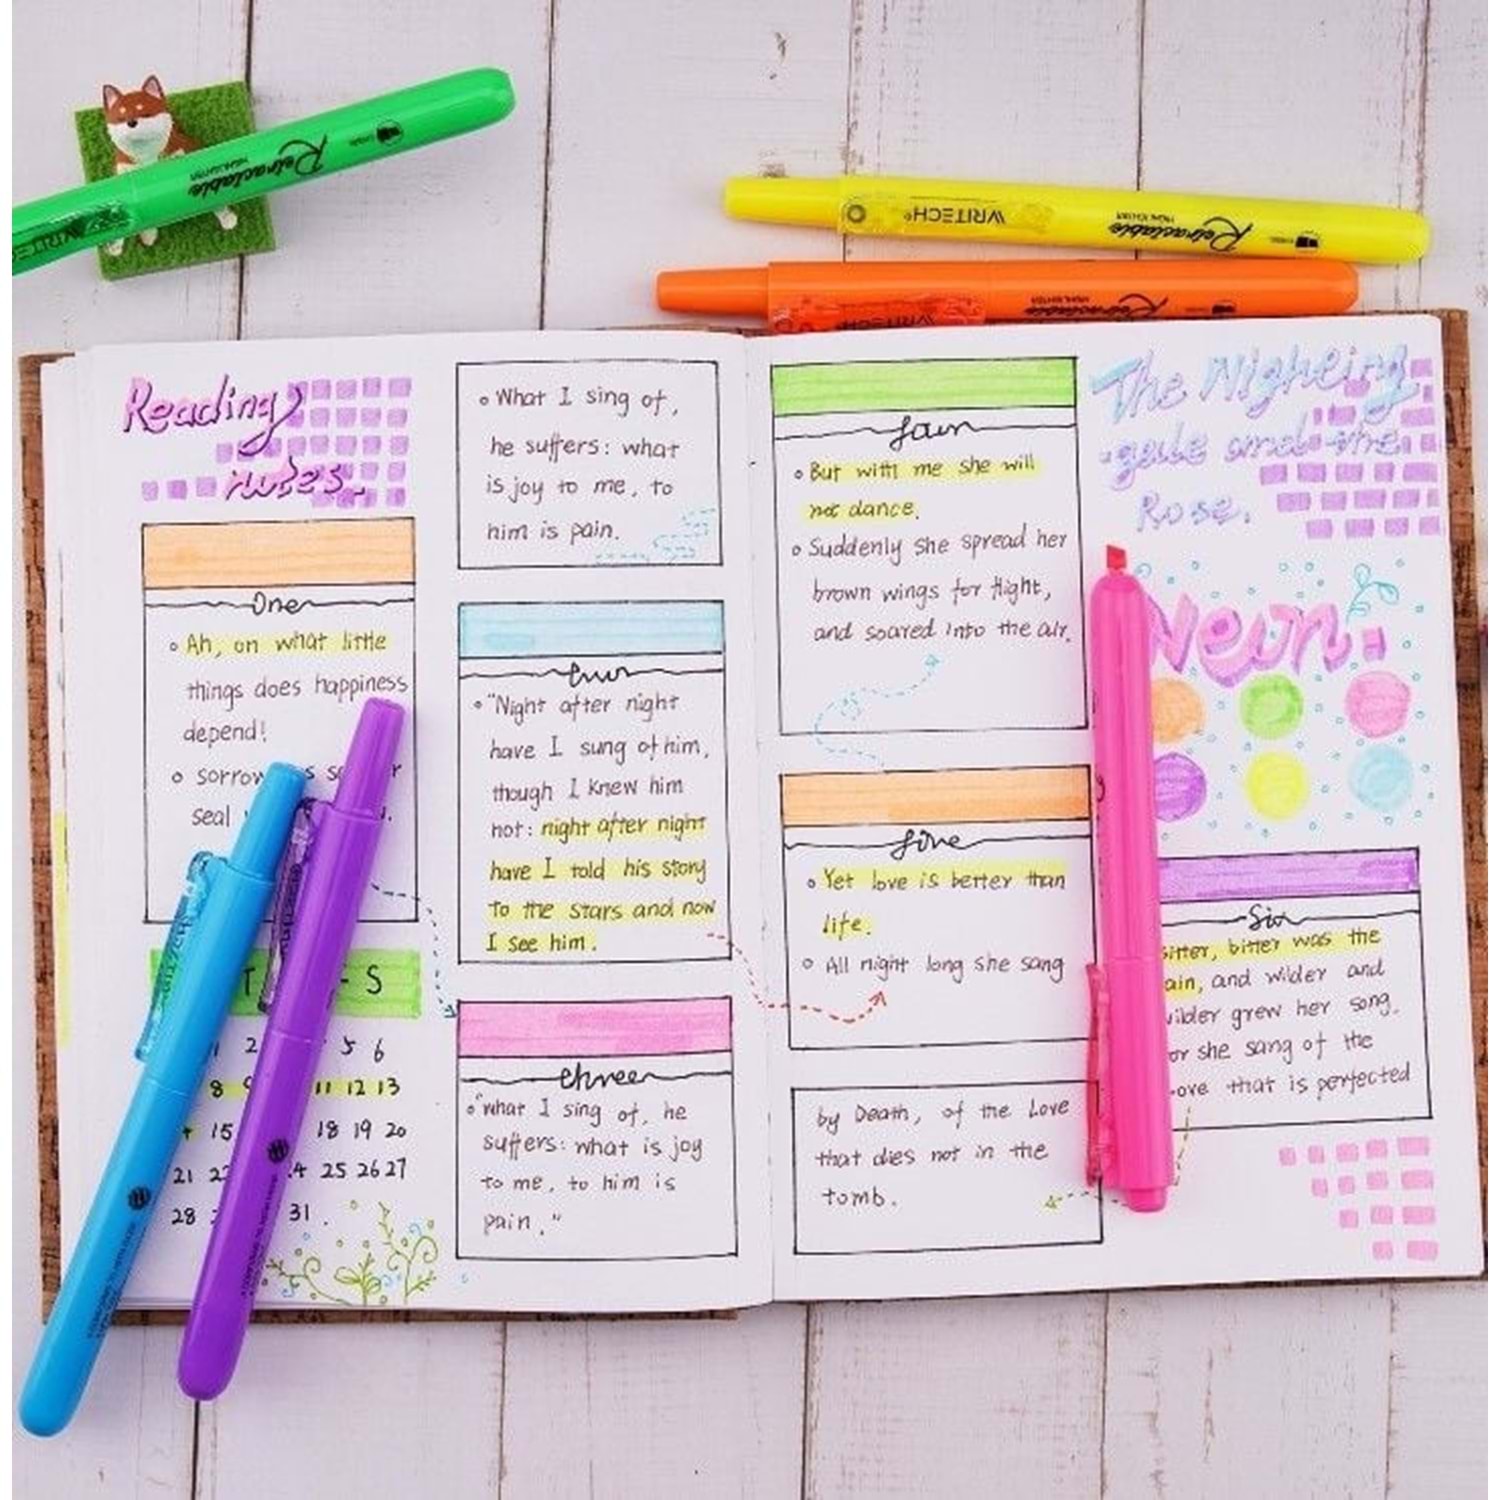 Retractable
HIGHLIGHTER
WRITECH
WRITECH®
Retractable
HIGHLIGHTER
WRITECH
Retractable
HIGHLIGHTER
Reading
notes.
One
Ah, on what little
things does happiness
depend!
sorrow
seal
T - S
1 2 5 6
8 9 11 12 13
15 18 19 20
21 22 25 26 27
28 31.
What I sing of,
he suffers: what
is joy to me, to
him is pain.
two
"Night after night
have I sung of him,
though I knew him
not: night after night
have I told his story
to the stars and now
I see him.
three
"what I sing of, he
suffers: what is joy
to me, to him is
pain."
four
But with me she will
not dance.
Suddenly she spread her
brown wings for flight,
and soared into the air.
five
Yet love is better than
life.
All night long she sang
by Death, of the Love
that dies not in the
tomb.
The Nighting
-gale and the
Rose.
Neon.
Six
bitter, bitter was the
ain, and wilder and
wilder grew her song.
or she sang of the
ove that is perfected